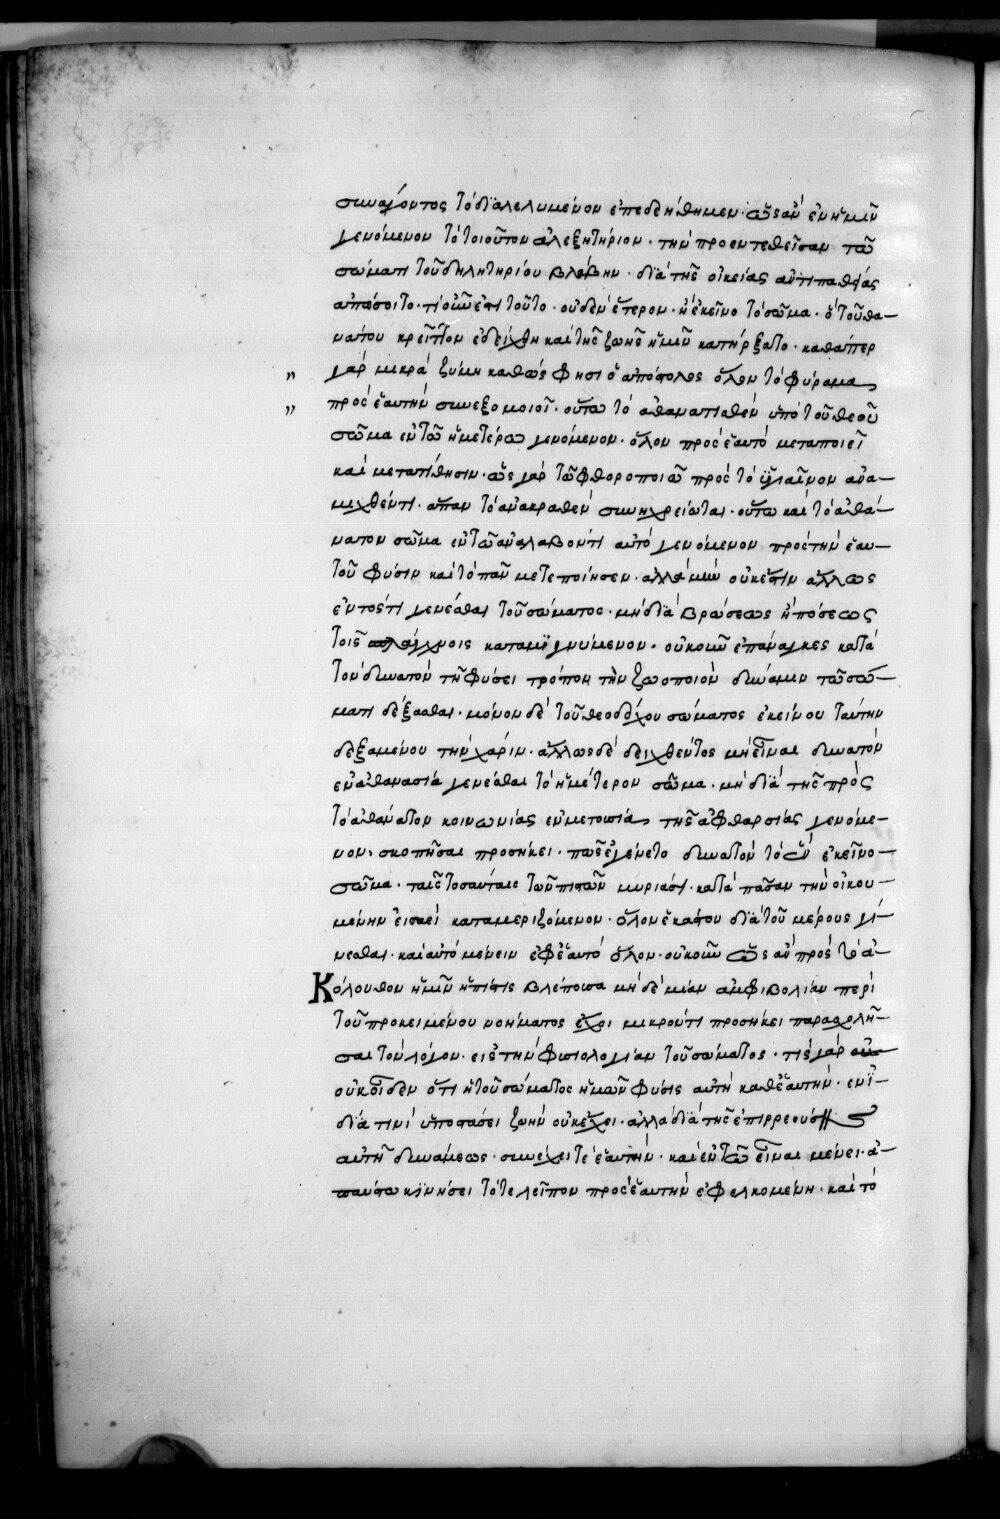 συνάγοντος τὸ διαλελυμένον ἐπεδεήθημεν· ὡς ἂν ἐν ἡμῖν
γενόμενον τὸ τοιοῦτον ἀλεξητήριον· τὴν προεντεθεῖσαν τῶ
σώματι τοῦ δηλητηρίου βλάβην· διὰ τῆς οἰκείας ἀντιπαθείας
ἀπώσοιτο· τί οὖν ἐστι τοῦτο· οὐδὲν ἕτερον· ἢ ἐκεῖνο τὸ σῶμα· ὃ τοῦ θα-
νάτου κρεῖττον ἐδείχθη καὶ τῆς ζωῆς ἡμῖν κατήρξατο· καθάπερ
" γὰρ μικρὰ ζύμη καθώς φησι ὁ ἀπόστολος ὅλον τὸ φύραμα
" πρὸς ἑαυτὴν συνεξομοιοῖ· οὕτω τὸ ἀθανατισθὲν ὑπὸ τοῦ θεοῦ
σῶμα ἐν τῶ ἡμετέρω γενόμενον· ὅλον πρὸς ἑαυτὸ μεταποιεῖ
καὶ μετατίθησιν· ὡς γὰρ τῶ φθοροποιῶ πρὸς τὸ ὑγιαῖνον ἀνα-
μιχθέντι· ἅπαν τὸ ἀνακραθὲν συνηχρείωται· οὕτω καὶ τὸ ἀθά-
νατον σῶμα ἐν τῶ ἀναλαβόντι αὐτὸ γενόμενον πρὸς τὴν ἑαυ-
τοῦ φύσιν καὶ τὸ πᾶν μετεποίησεν· ἀλλὰ μὴν οὐκ ἔστιν ἄλλως
ἐντός τι γενέσθαι τοῦ σώματος· μὴ διὰ βρώσεως ἢ πόσεως
τοῖς σπλάγχνοις καταμιγνύμενον· οὐκοῦν ἐπάναγκες κατὰ
τὸν δυνατὸν τῆ φύσει τρόπον τὴν ζωοποιὸν δύναμιν τῶ σώ-
ματι δέξασθαι· μόνου δὲ τοῦ θεοδόχου σώματος ἐκείνου ταύτην
δεξαμένου τὴν χάριν· ἄλλως δὲ δειχθέντος μὴ εἶναι δυνατὸν
ἐν ἀθανασία γενέσθαι τὸ ἡμέτερον σῶμα· μὴ διὰ τῆς πρὸς
τὸ ἀθάνατον κοινωνίας ἐν μετουσία τῆς ἀφθαρσίας γενόμε-
νον, σκοπῆσαι προσήκει· πῶς ἐγένετο δυνατὸν τὸ ἓν ἐκεῖνο
σῶμα· ταῖς τοσαύταις τῶν πιστῶν μυριάσι· κατὰ πᾶσαν τὴν οἰκου-
μένην εἰσαεὶ καταμεριζόμενον· ὅλον ἑκάστου διὰ τοῦ μέρους γί-
νεσθαι· καὶ αὐτὸ μένειν ἐφ' ἑαυτὸ ὅλον· οὐκοῦν ὡς ἂν πρὸς τὸ ἀ-
Κόλουθον ἡμῖν ἡ πίστις βλέπουσα μηδεμίαν ἀμφιβολίαν περὶ
τοῦ προκειμένου νοήματος ἔχοι μικρόν τι προσήκει παρασχολῆ-
σαι τὸν λόγον· εἰς τὴν φυσιολογίαν τοῦ σώματος· τίς γὰρ
οὐκ οἶδεν ὅτι ἡ τοῦ σώματος ἡμῶν φύσις αὐτὴ καθ' ἑαυτὴν· ἐν ἰ-
δία τινὶ ὑποστάσει ζωὴν οὐκ ἔχοι· ἀλλὰ διὰ τῆς ἐπιρρεούσης
αὐτῆ δυνάμεως· συνέχει τε ἑαυτὴν· καὶ ἐν τῶ εἶναι μένει· ἀ-
παύστω κινήσει τότε λεῖπον πρὸς ἑαυτὴν ἐφελκομένη· καὶ τὸ